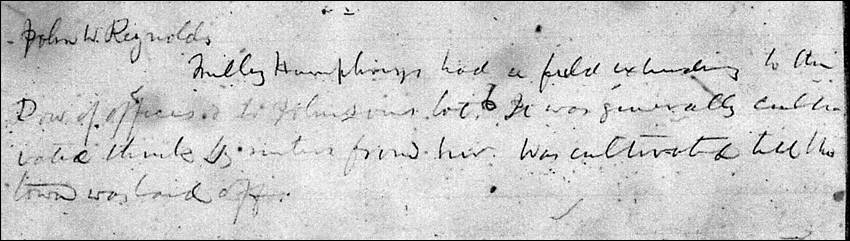 John W. Reynolds
Milley Humphreys had a field extending to the
Row of offices & to Johnsons lot. It was generally culti
vated thinks by renters from her. Was cultivated till the
town was laid off.